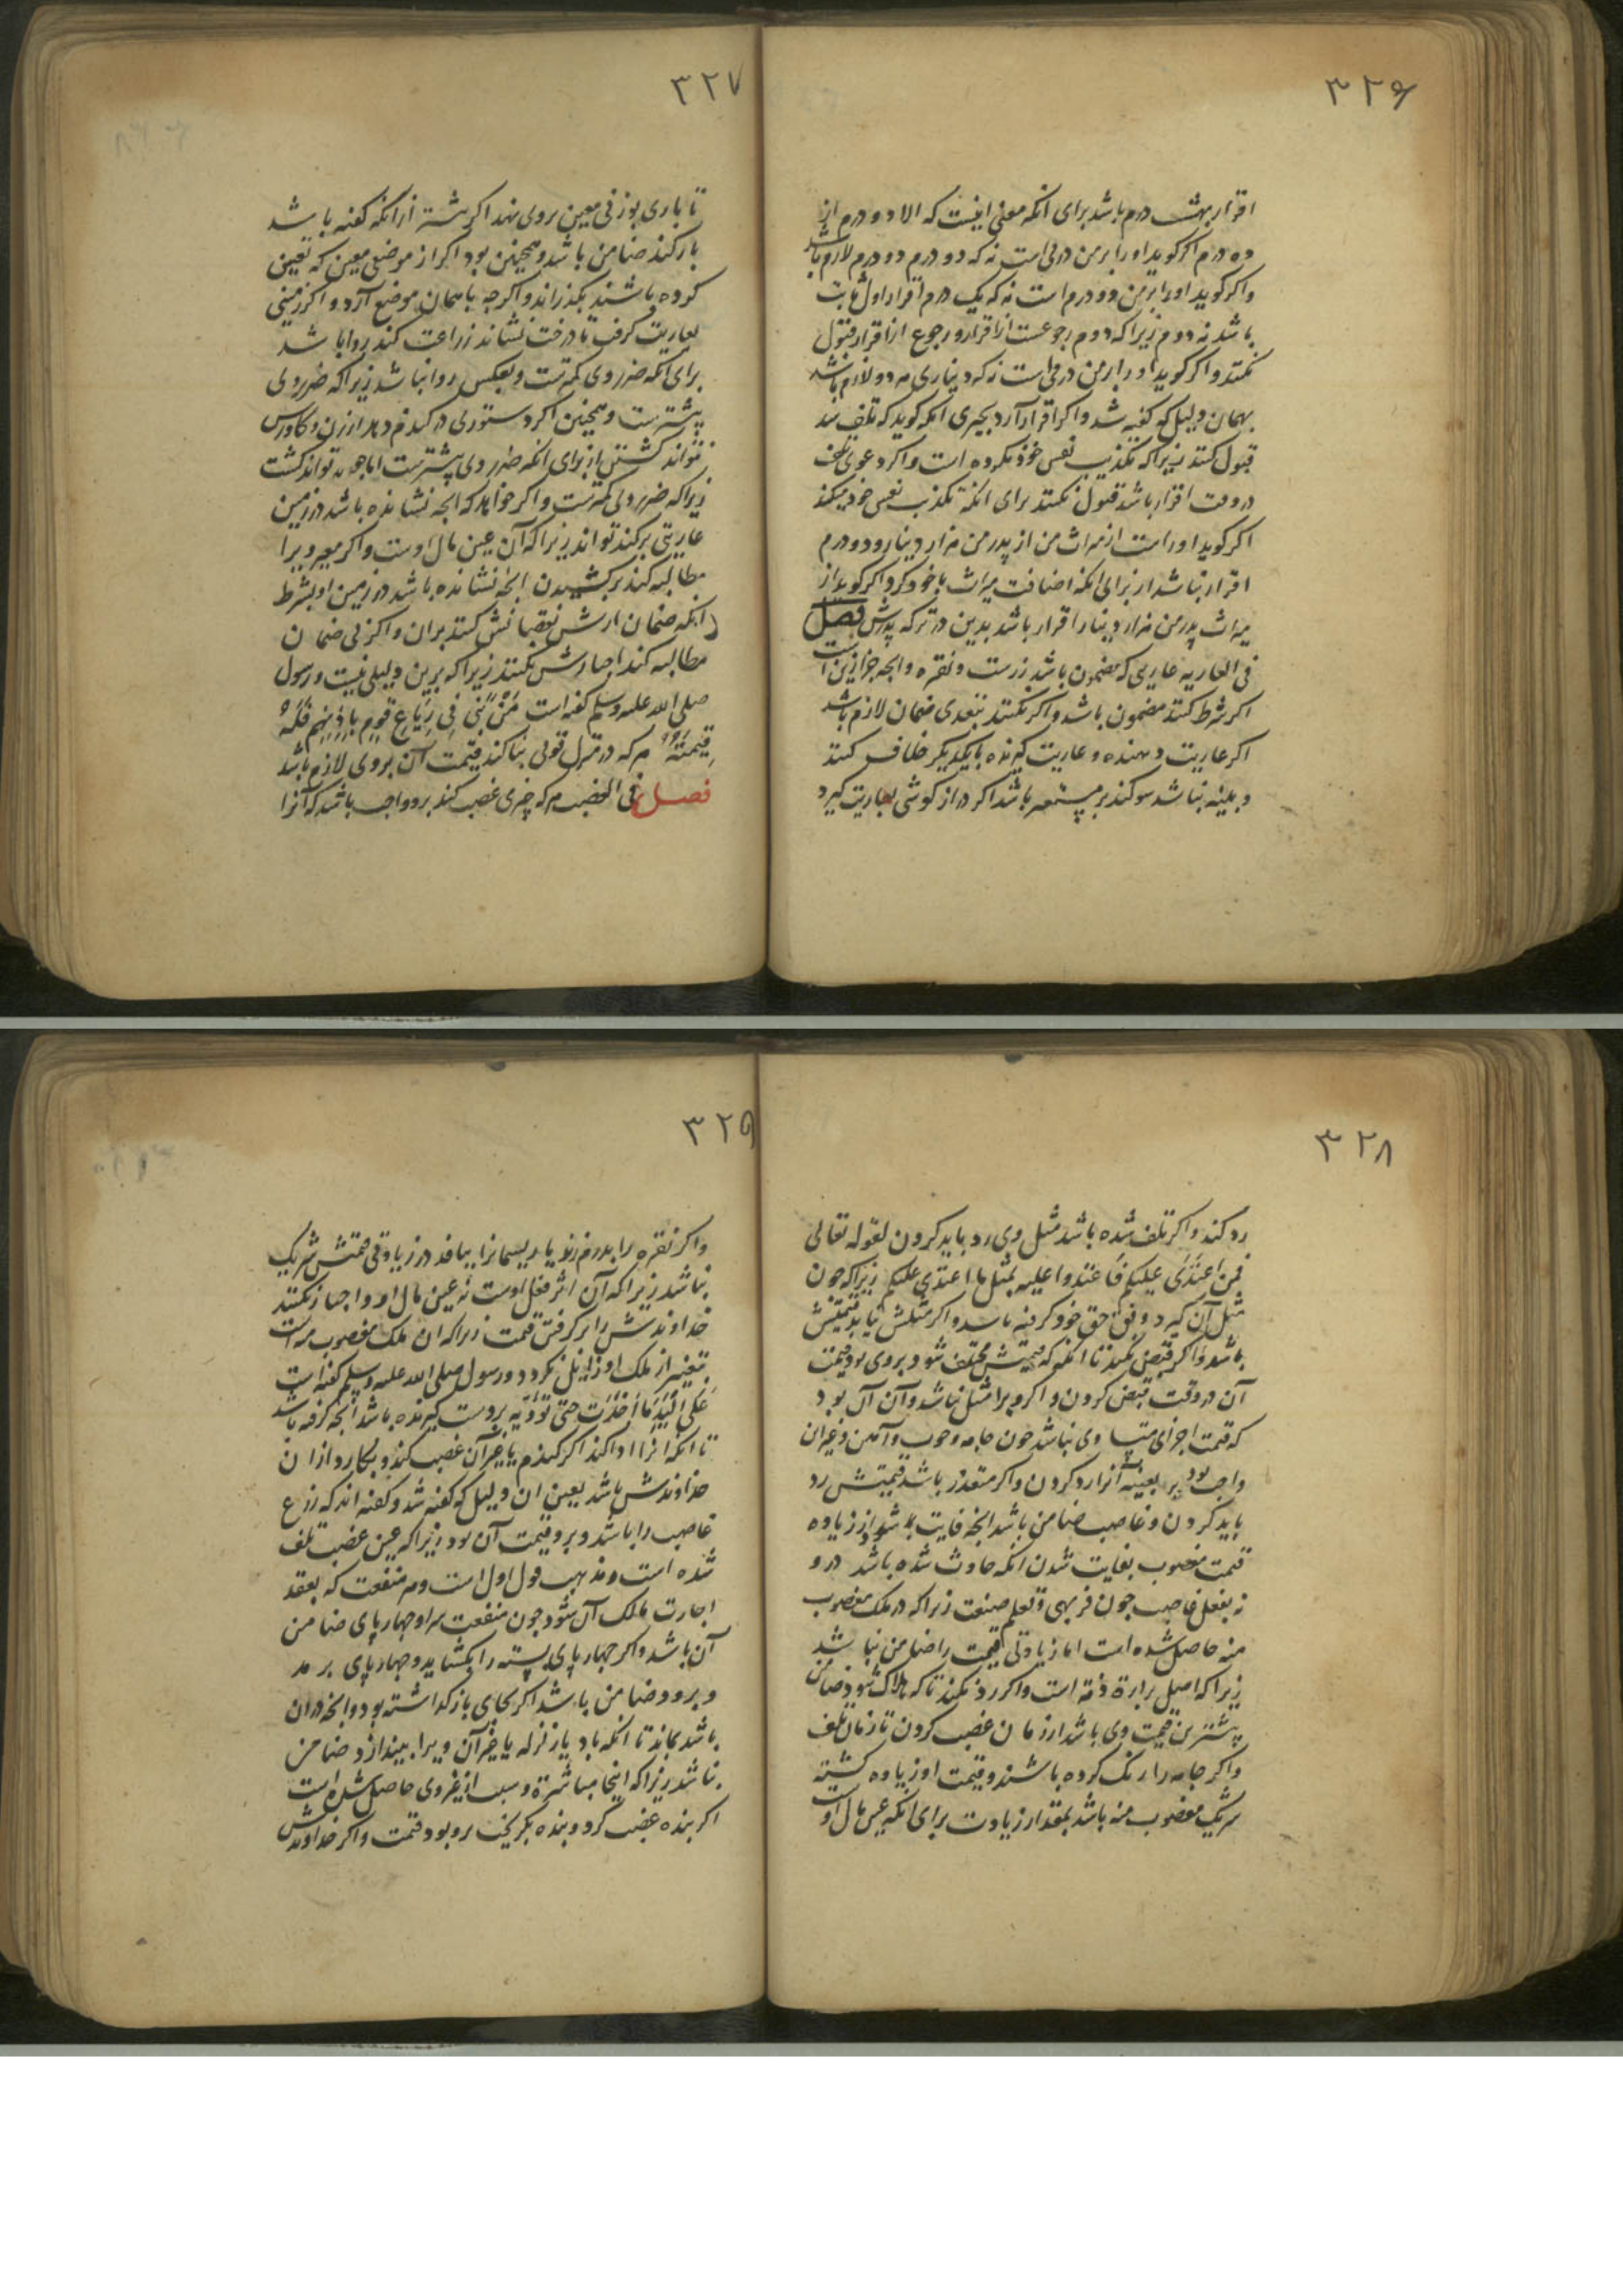 ۳۲۶
اقرار بهشت درم باشد برای انکه معنی اینست که الا دو درم از
ده درم اکر کوید او را بر من درمی است نه که دو درم دو درم لازم باشد
واکر کوید او را بر من دو درم است نه که یک درم اقرار اول ثابت
باشد نه دوم زیرا که دوم رجوعست از اقرار و رجوع از اقرار قبول
نکنند و اکر کوید او را بر من درمی است نه که دیناری هر دو لازم باشد
بهمان دلیل که کفته شد و اکر اقرار آرد بچیزی انکه کوید که تلف شد
قبول کنند زیرا که تکذیب نفس خوذ نکرده است واکر دعوی تلف
در وقت اقرار باشد قبول نکنند برای انکه تکذیب نفس خود میکند
اکر کوید او راست از میراث من از پدر من هزار دینار و دو درم
اقرار نباشد از برای انکه اضافت میراث باخود کرد و اکر کوید از
میراث پدر من هزار دینار اقرار باشد بدین در ترکه پدرش فصل
فی العاریه عاریتی که مضمون باشد زرست و نقره و انجه جز ازین است
اکر شرط کنند مضمون باشد و اکر نکنند بتعدی ضمان لازم باشد
اکر عاریت دهنده و عاریت کیرنده بایکدیکر خلاف کنند
و بینه نباشد سوکند بر مستعیر باشد اکر دراز کوشی بعاریت کیرد
۳۲۷
تا باری بوزنی معین بروی نهد اکر بیشتر از انکه کفته باشد
بار کند ضامن باشد و همچنین بود اکر از موضعی معین که تعین
کرده باشند بکذراند و اکر چه با همان موضع آرد و اکر زمینی
بعاریت کرفت تا درخت نشاند زراعت کند روا باشد
برای انکه ضرر وی کمترست و بعکس روا نباشد زیرا که ضرر وی
بیشترست و همچنین اکر دستوری در کندم دهد ارزن و کاورس
نتواند کشتن از برای انکه ضرر وی بیشترست اما جو تواند کشت
زیرا که ضرر وی کمترست و اکر خواهد که انجه نشانده باشد در زمین
عاریتی برکند تواند زیرا که آن عین مال اوست و اکر معیر ویرا
مطالبه کند برکشیدن انجه نشانده باشد در زمین او بشرط
انکه ضمان ارش نقصانش کند بران و اکر بی ضمان
مطالبه کند اجبارش نکنند زیرا که برین دلیلی نیست و رسول
صلی الله علیه وسلم کفته است مَنْ بَنٰی فِی رِبَاعِ قَومٍ بِاِذْنِهِم فَلَهُ
قِیمَتُهُ هر که در منزل قومی بنا کند قیمت آن بروی لازم باشد
فصل فی الغصب هر که چیزی غصب کند برو واجب باشد که آنرا
۳۲۸
رد کند و اکر تلف شده باشد مثل وی رد باید کردن لقوله تعالی
فمن اعتدی علیکم فاعتدوا علیه بمثل ما اعتدی علیکم زیرا که جون
مثل آن کیرد وفق حق خود کرفته باشد و اکر مثلش نیابد قیمتش
باشد و اکر قبض نکند تا انکه که قیمتش مختلف شود بروی بود قیمت
آن در وقت قبض کردن و اکر ویرا مثل نباشد و آن آن بود
که قیمت اجزای متساوی نباشد جون جامه و جوب و آهن و غیر ان
واجب بود بر بعینه آنرا رد کردن و اکر متعذر باشد قیمتش رد
باید کردن و غاصب ضامن باشد انجه فایت شود از زیاده
قیمت مغصوب بفایت شدن انکه حادث شده باشد درو
نه بفعل غاصب جون فربهی و تعلم صنعت زیرا که در ملک مغصوب
منه حاصل شده است اما زیادتی قیمت را ضامن نباشد
زیرا که اصل براءة ذمه است و اکر رد نکند تا که هلاک شود ضامن
بیشترین قیمت وی باشد از زمان غصب کردن تا زمان تلف
و اکر جامه را رنک کرده باشند و قیمت او زیاده کشته
شریک مغصوب منه باشد بمقدار زیادت برای انکه عین مال اوست
۳۲۹
واکر نقره را بدرم زند یا ریسمانرا ببافد در زیادتی قیمتش شریک
نباشد زیرا که آن اثر فعل اوست نه عین مال او و اجبار نکنند
خداوندش را بر کرفتن قیمت زیرا که ان ملک مغصوب منه است
بتغییر از ملک او زایل نکردد و رسول صلی الله علیه وسلم کفته است
عَلَی الْیَدِ مَا أَخَذَتْ حَتّٰی تُؤَدِّیَه بر دست کیرنده باشد انجه کرفته باشد
تا انکه انرا ادا کند اکر کندم یا جز آن غصب کند و بکارد از ان
خداوندش باشد بعین ان دلیل که کفته شد و کفته اند که زرع
غاصب را باشد و برو قیمت آن بود زیرا که عین غصب تلف
شده است و مذهب قول اول است و هر منفعت که بعقد
اجارت مالک آن شود جون منفعت سرا و جهار پای ضامن
آن باشد و اکر جهار پای بسته را بکشاید و جهار پای برمد
و برود ضامن باشد اکر بجای باز کذاشته بود و انجه دران
باشد بماند تا انکه باد یا زلزله یا غیر آن ویرا بیندازد ضامن
نباشد زیرا که اینجا مباشرة و سبب از غیر وی حاصل شده است
اکر بنده غصب کرد و بنده بکریخت برو بود قیمت و اکر خداوندش